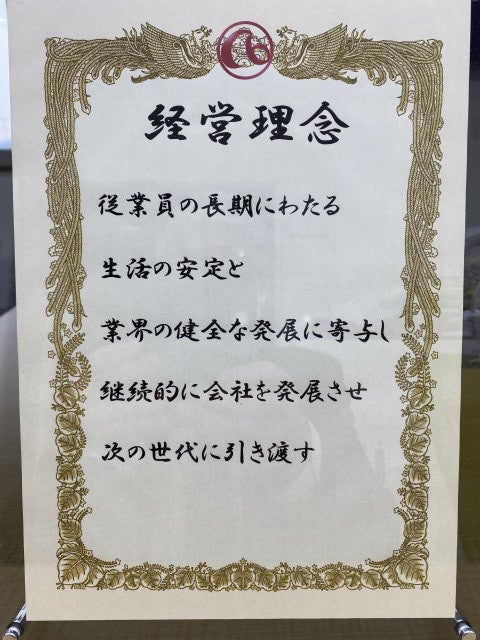 経営理念
従業員の長期にわたる
生活の安定と
業界の健全な発展に寄与し
継続的に会社を発展させ
次の世代に引き渡す